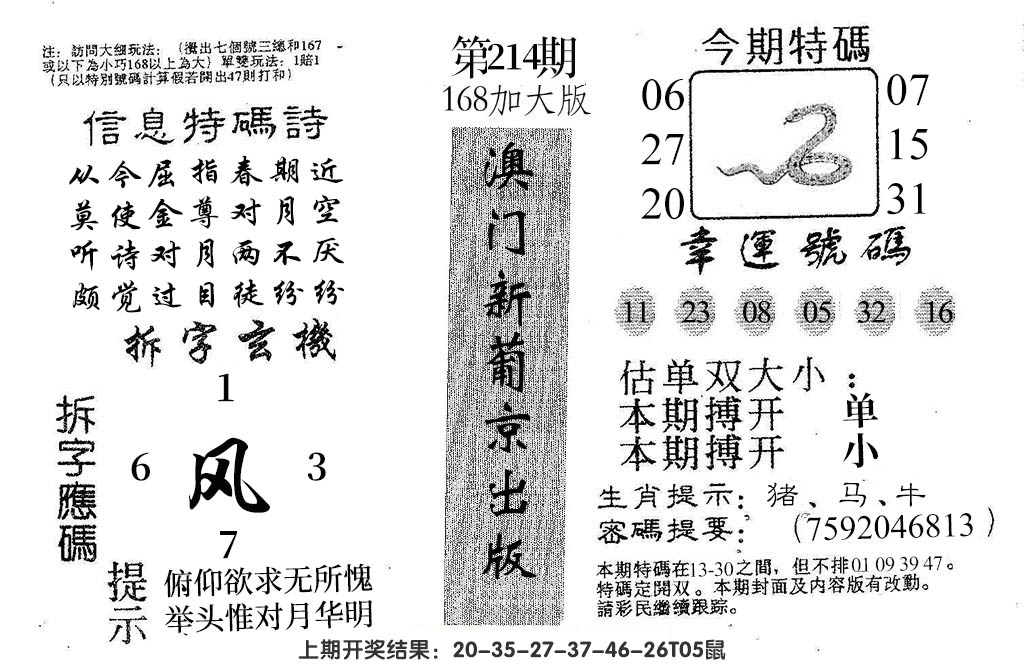 注：訪問大細玩法：（攪出七個號三總和167
或以下為小巧168以上為大）單雙玩法：1賠1
（只以特別號碼計算假若開出47則打和）
信息特碼詩
从今屈指春期近
莫使金尊对月空
听诗对月两不厌
颇觉过目徒纷纷
拆字玄機
拆字應碼
1
6 风 3
7
提示
俯仰欲求无所愧
举头惟对月华明
第214期
168加大版
澳门新葡京出版
今期特碼
06 07
27 15
20 31
幸運號碼
11 23 08 05 32 16
估单双大小：
本期搏开 单
本期搏开 小
生肖提示：猪、马、牛
密碼提要：（7592046813）
本期特碼在13-30之間，但不排01 09 39 47。
特碼定開双。本期封面及内容版有改動。
請彩民繼續跟踪。
上期开奖结果：20-35-27-37-46-26T05鼠